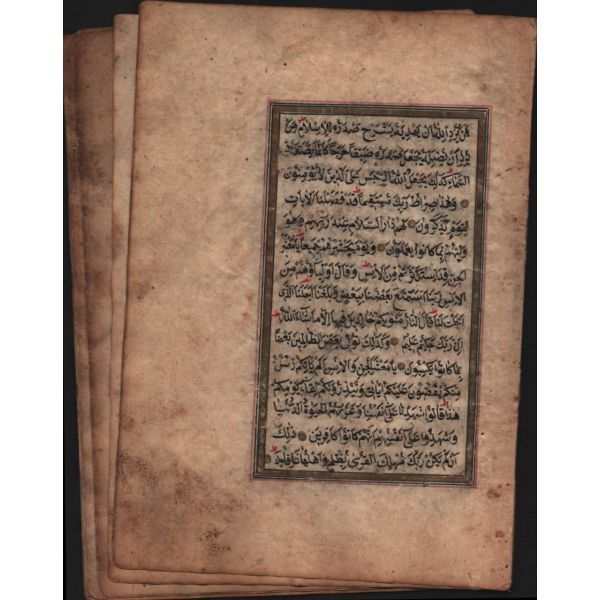 فَمَنْ يُرِدِ اللّٰهُ اَنْ يَهْدِيَهُ يَشْرَحْ صَدْرَهُ لِلْاِسْلَامِ وَمَنْ
يُرِدْ اَنْ يُضِلَّهُ يَجْعَلْ صَدْرَهُ ضَيِّقًا حَرَجًا كَاَنَّمَا يَصَّعَّدُ فِي
السَّمَاءِ كَذٰلِكَ يَجْعَلُ اللّٰهُ الرِّجْسَ عَلَى الَّذِينَ لَا يُؤْمِنُونَ
وَهٰذَا صِرَاطُ رَبِّكَ مُسْتَقِيمًا قَدْ فَصَّلْنَا الْاٰيَاتِ
لِقَوْمٍ يَذَّكَّرُونَ لَهُمْ دَارُ السَّلَامِ عِنْدَ رَبِّهِمْ وَهُوَ
وَلِيُّهُمْ بِمَا كَانُوا يَعْمَلُونَ وَيَوْمَ يَحْشُرُهُمْ جَمِيعًا يَا مَعْشَرَ
الْجِنِّ قَدِ اسْتَكْثَرْتُمْ مِنَ الْاِنْسِ وَقَالَ اَوْلِيَاؤُهُمْ مِنَ
الْاِنْسِ رَبَّنَا اسْتَمْتَعَ بَعْضُنَا بِبَعْضٍ وَبَلَغْنَا اَجَلَنَا الَّذِي
اَجَّلْتَ لَنَا قَالَ النَّارُ مَثْوٰيكُمْ خَالِدِينَ فِيهَا اِلَّا مَا شَاءَ اللّٰهُ
اِنَّ رَبَّكَ حَكِيمٌ عَلِيمٌ وَكَذٰلِكَ نُوَلِّي بَعْضَ الظَّالِمِينَ بَعْضًا
بِمَا كَانُوا يَكْسِبُونَ يَا مَعْشَرَ الْجِنِّ وَالْاِنْسِ اَلَمْ يَأْتِكُمْ رُسُلٌ
مِنْكُمْ يَقُصُّونَ عَلَيْكُمْ اٰيَاتِي وَيُنْذِرُونَكُمْ لِقَاءَ يَوْمِكُمْ
هٰذَا قَالُوا شَهِدْنَا عَلَى اَنْفُسِنَا وَغَرَّتْهُمُ الْحَيٰوةُ الدُّنْيَا
وَشَهِدُوا عَلَى اَنْفُسِهِمْ اَنَّهُمْ كَانُوا كَافِرِينَ ذٰلِكَ
اَنْ لَمْ يَكُنْ رَبُّكَ مُهْلِكَ الْقُرٰى بِظُلْمٍ وَاَهْلُهَا غَافِلُونَ